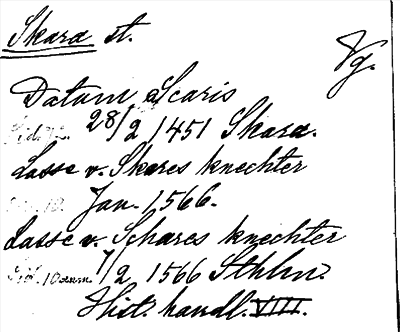 Skara st.
Vg.
Datum Scaris
28/2 1451 Skara.
Lasse v. Skares knechter
Jan. 1566.
Lasse v. Schares knechter
7/2 1566 Sthlm.
Hist. handl. VIII.